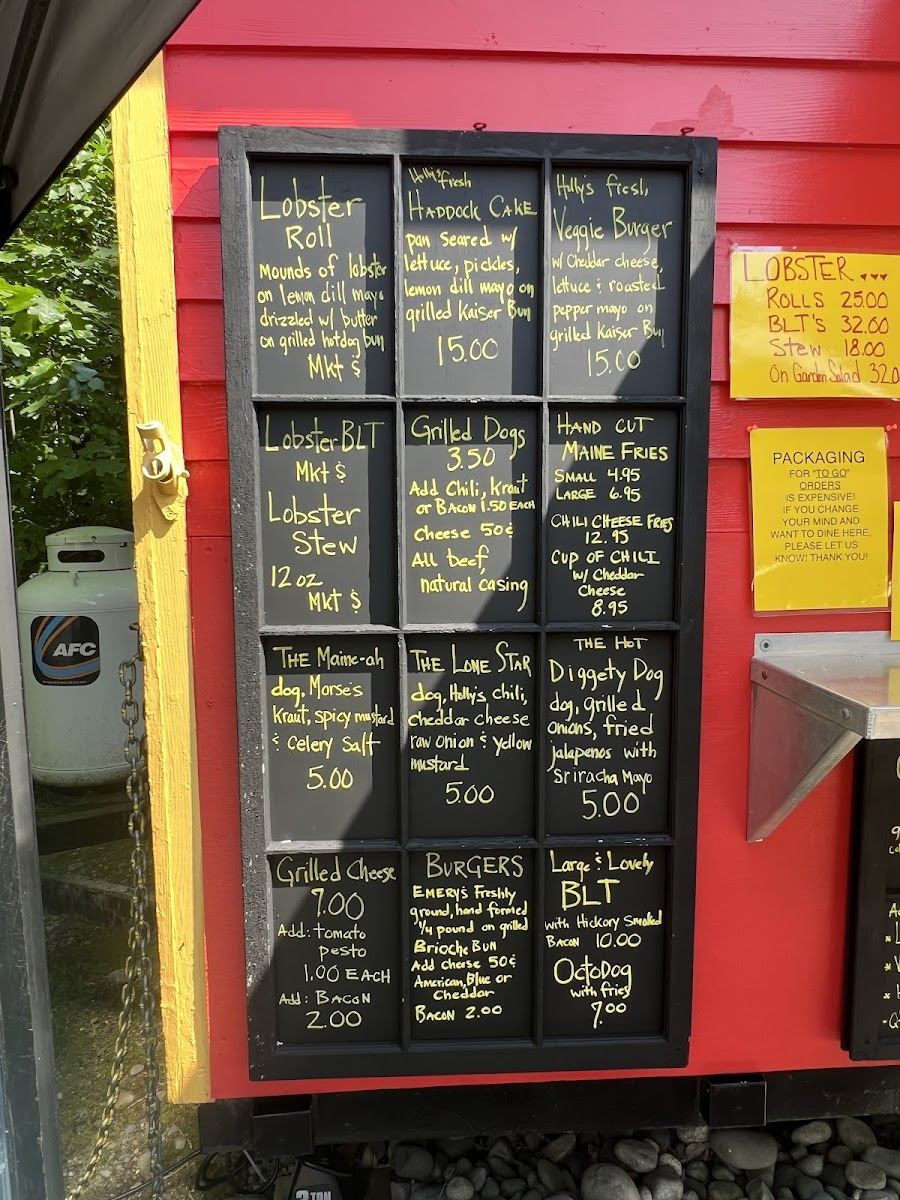 Lobster
Roll
Mounds of lobster
on lemon dill mayo
drizzled w/ butter
on grilled hotdog bun
Mkt $
Holly's fresh
HADDOCK CAKE
pan seared w/
lettuce, pickles,
lemon dill mayo on
grilled Kaiser Bun
15.00
Holly's fresh,
Veggie Burger
w/ Cheddar cheese,
lettuce & roasted
pepper mayo on
grilled Kaiser Bun
15.00
Lobster BLT
Mkt $
Lobster
Stew
12 oz
Mkt $
Grilled Dogs
3.50
Add Chili, Kraut
or BACON 1.50 EACH
Cheese 50¢
All beef,
natural casing
HAND CUT
MAINE FRIES
SMALL 4.95
LARGE 6.95
CHILI CHEESE FRIES
12.95
CUP OF CHILI
w/ Cheddar
Cheese
8.95
THE Maine-ah
dog, Morse's
Kraut, spicy mustard
& Celery Salt
5.00
THE LONE STAR
dog, Holly's chili,
cheddar cheese
raw onion & yellow
mustard
5.00
THE HOT
Diggety Dog
dog, grilled
onions, fried
jalapenos with
Sriracha Mayo
5.00
Grilled Cheese
7.00
Add: tomato
pesto
1.00 EACH
Add: BACON
2.00
BURGERS
EMERY'S Freshly
ground, hand formed
1/4 pound on grilled
Brioche BUN
Add cheese 50¢
American, Blue or
Cheddar
BACON 2.00
Large & Lovely
BLT
with Hickory Smoked
BACON 10.00
OCTODOG
with fries
7.00
LOBSTER
ROLLS 25.00
BLT'S 32.00
Stew 18.00
On Garden Salad 32.0
PACKAGING
FOR "TO GO"
ORDERS
IS EXPENSIVE!
IF YOU CHANGE
YOUR MIND AND
WANT TO DINE HERE,
PLEASE LET US
KNOW! THANK YOU!
AFC
3 TON